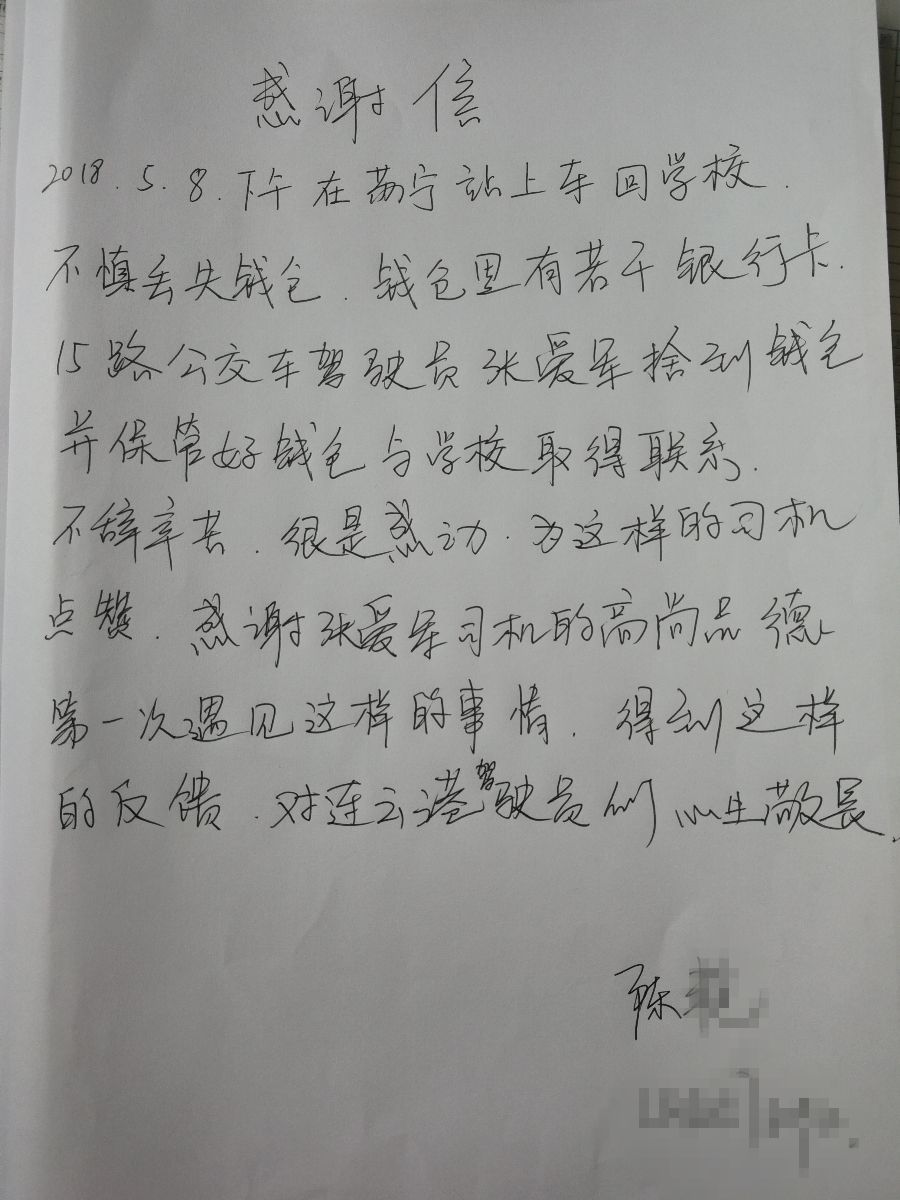 感谢信
2018.5.8.下午在苏宁站上车回学校.
不慎丢失钱包.钱包里有若干银行卡.
15路公交车驾驶员张爱军捨到钱包
并保管好钱包与学校取得联系.
不辞辛苦.很是感动.为这样的司机
点赞.感谢张爱军司机的高尚品德
第一次遇见这样的事情.得到这样
的反馈.对连云港驾驶员们心生敬畏.
陈